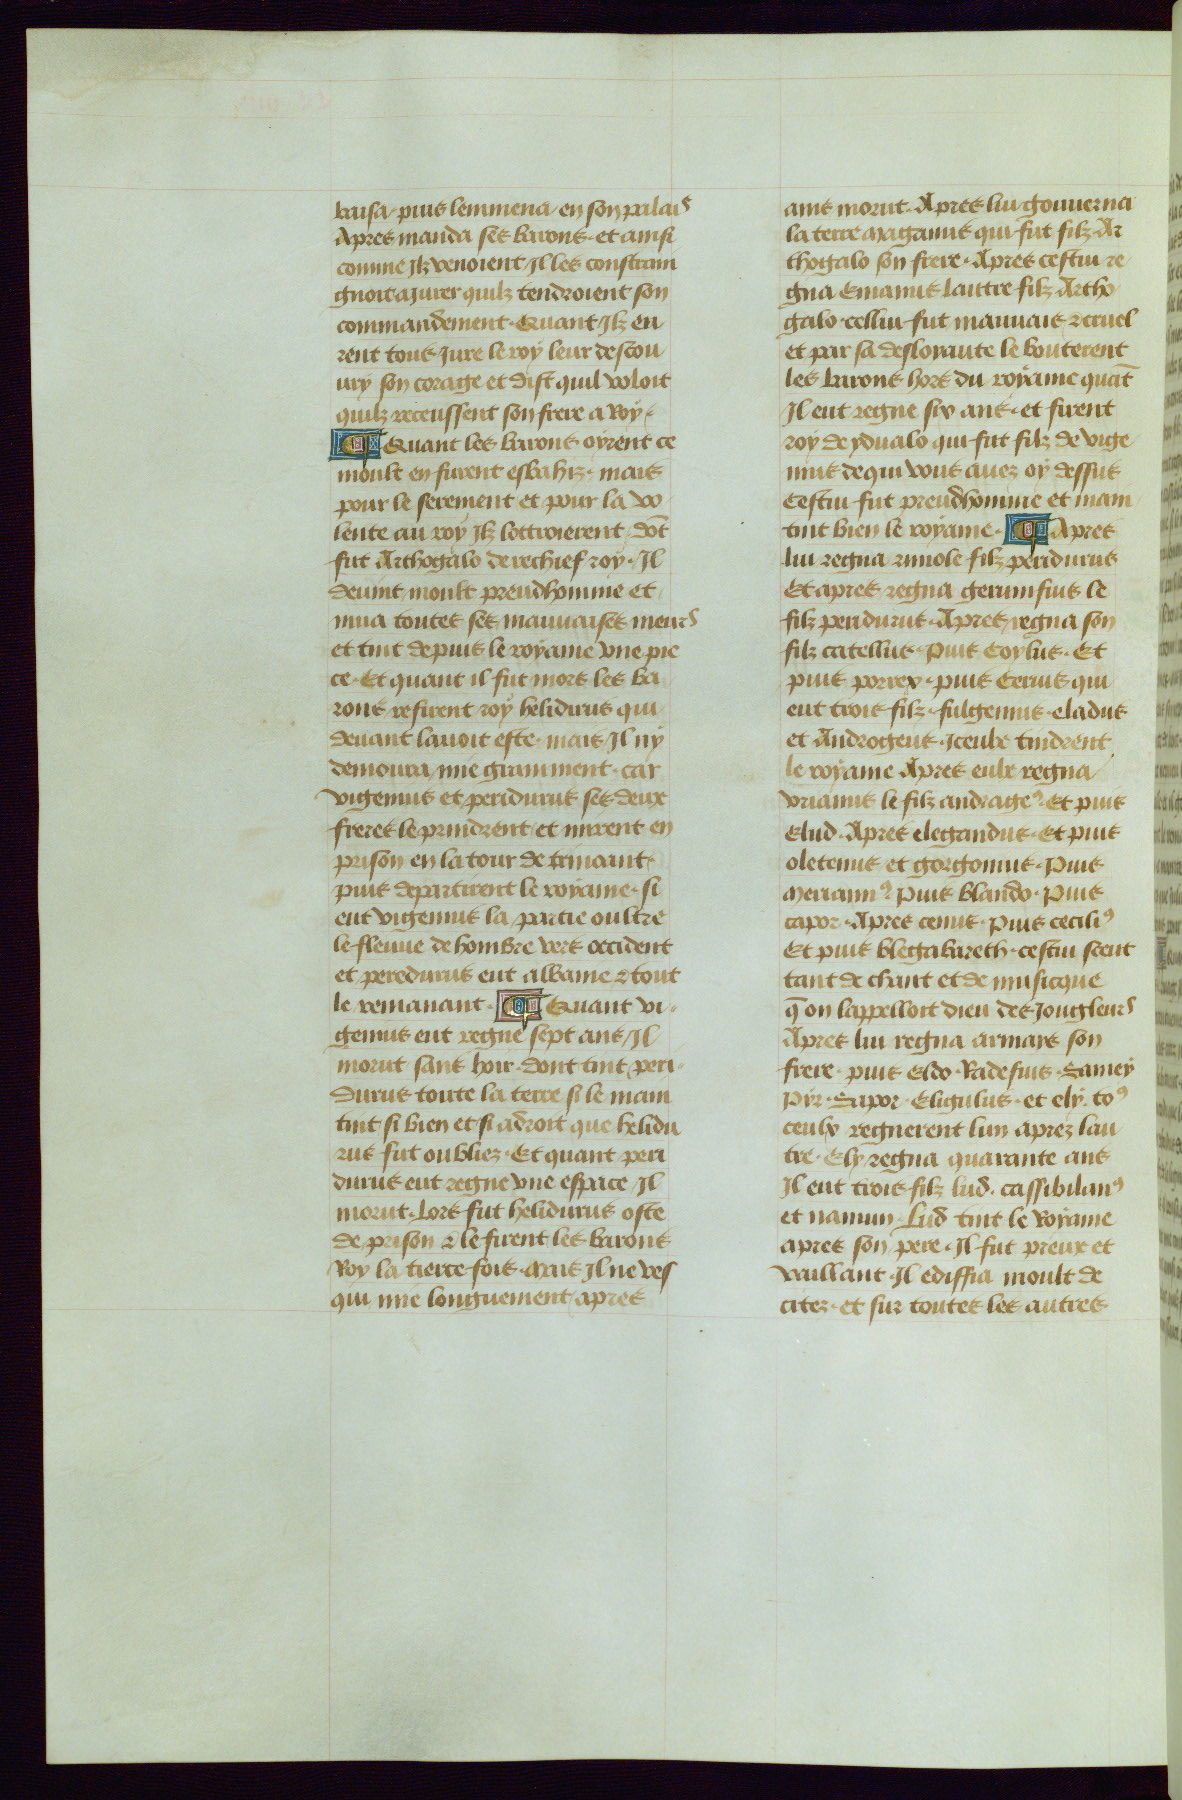 baisa puis lemmena en son palais
Apres manda ses barons et ainsi
comme Ilz venoient Il les constrain
gnoit a Jurer quilz tendroient son
commandement. Quant Ilz eu
rent tous Jure le roy leur descou
ury son corage et dist quil voloit
quilz receussent son frere a Roy.
Quant les barons oyrent ce
moult en furent esbahiz. mais
pour le serement et pour la vo
lente au roy Ilz lottroierent dōt
fut Arthogalo de rechief roy. Il
deuint moult preudhomme et
mua toutes ses mauuaises meurs
et tint depuis le royame vne pie
ce. Et quant il fut mors les ba
rons refirent roy helidurus qui
deuant lauoit este. mais Il ny
demoura mie gramment. car
vigenius et peridurus ses deux
freres le prindrent et mirent en
prison en la tour de trinouant
puis departirent le royame. si
eut vigenius la partie oultre
le fleuue de hombre vers occident
et peredurus eut albaine ⁊ tout
le remanant. Quant vi
genius eut regne sept ans Il
morut sans hoir. dont tint peri
durus toute la terre si le main
tint si bien et si adroit que helidu
rus fut oubliez. Et quant peri
durus eut regne vne espace Il
morut. Lors fut helidurus oste
de prison ⁊ le firent les barons
Roy la tierce fois. Mais Il ne ves
qui mie longuement apres
ains morut. Apres lui gouuerna
la terre Maganus qui fut filz Ar
thogalo son frere. Apres cestui re
gna Emanus lautre filz Artho
galo. cellui fut mauuais ⁊ cruel
et par sa desloyaute le bouterent
les barons hors du royame quāt
Il eut regne six ans. et firent
roy de ydualo qui fut filz de vige
nius de qui vous auez oy dessus
Cestui fut preudhomme et main
tint bien le royame. Apres
lui regna rimole filz peridurus
Et apres regna gerunsius le
filz peridurus. Apres regna son
filz catellus. Puis Coylus. Et
puis porrex. puis Cerius qui
eut trois filz. fulgenius. eladus
et Androgeus. Iceulx tindrent
le royame Apres eulx regna
vrianus le filz andrageꝰ. Et puis
Elud. Apres elegandus. Et puis
oletenus et gorgonius. Puis
Meriannꝰ. Puis blando. Puis
capor. Apres cenus. Puis ceciliꝰ
Et puis blegabareth. cestui sceut
tant de chant et de musicque
q̄ on lappelloit dieu des Jougleurs
Apres lui regna armays son
frere. puis Eldo. Radesius. Samey
Pyr. Sapor. Eligulus. et ely. toꝰ
ceulx regnerent lun aprez lau
tre. Ely regna quarante ans
Il eut trois filz lud. cassibilanꝰ
et namun. Lud tint le Royame
apres son pere. Il fut preux et
vaillant. Il ediffia moult de
citez. et sur toutes les autres